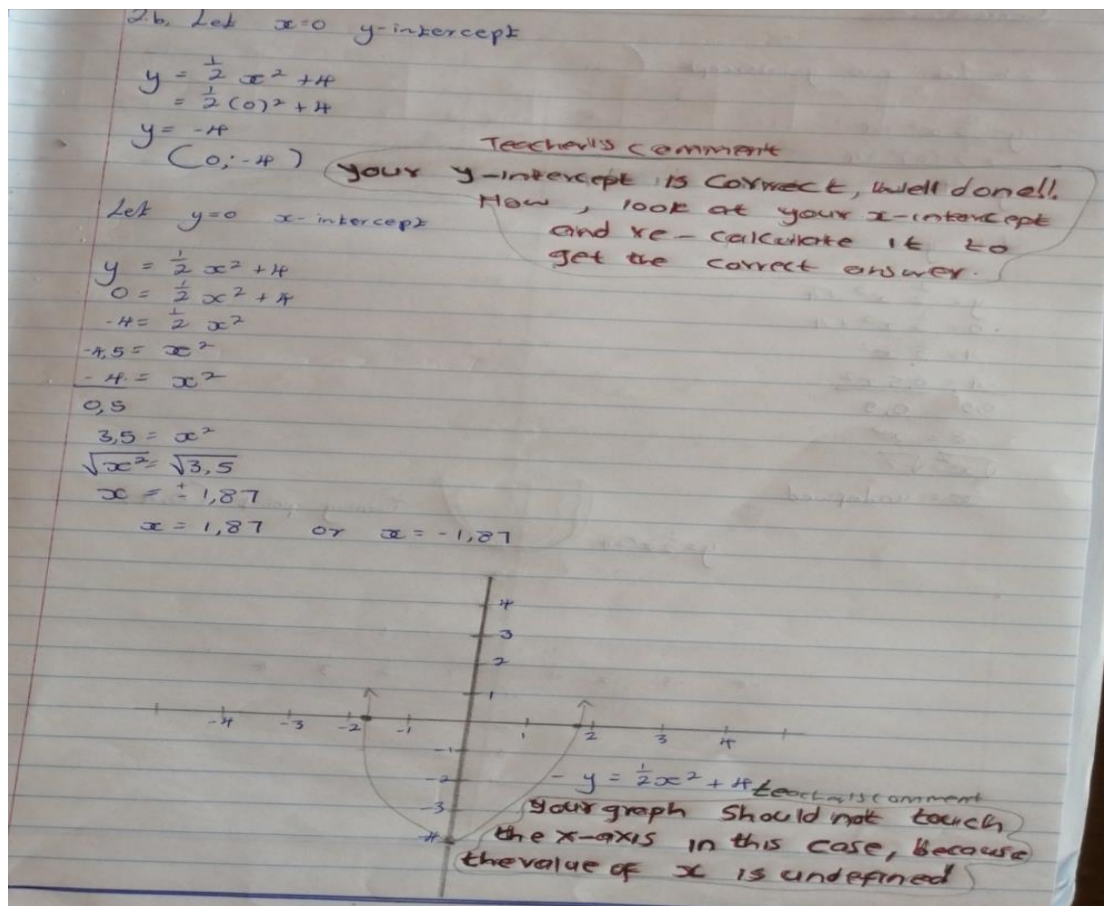 2.b. Let x=0 y-intercept
y = 1/2 x² +4
= 1/2 (0)² + 4
y = -4
(0; -4)
Teacher's comment
your y-intercept is correct, well done!!
Now, look at your x-intercept
and re-calculate it to
get the correct answer.
Let y=0 x-intercept
y = 1/2 x² +4
0 = 1/2 x² + 4
-4 = 1/2 x²
-4,5 = x²
-4 = x²
0,5
3,5 = x²
√x² = √3,5
x = ± 1,87
x = 1,87 or x = -1,87
4
3
2
1
-4 -3 -2 -1 1 2 3 4
-1
-2
-3
-4
- y = 1/2 x² + 4
teacher's comment
your graph should not touch
the x-axis in this case, because
the value of x is undefined